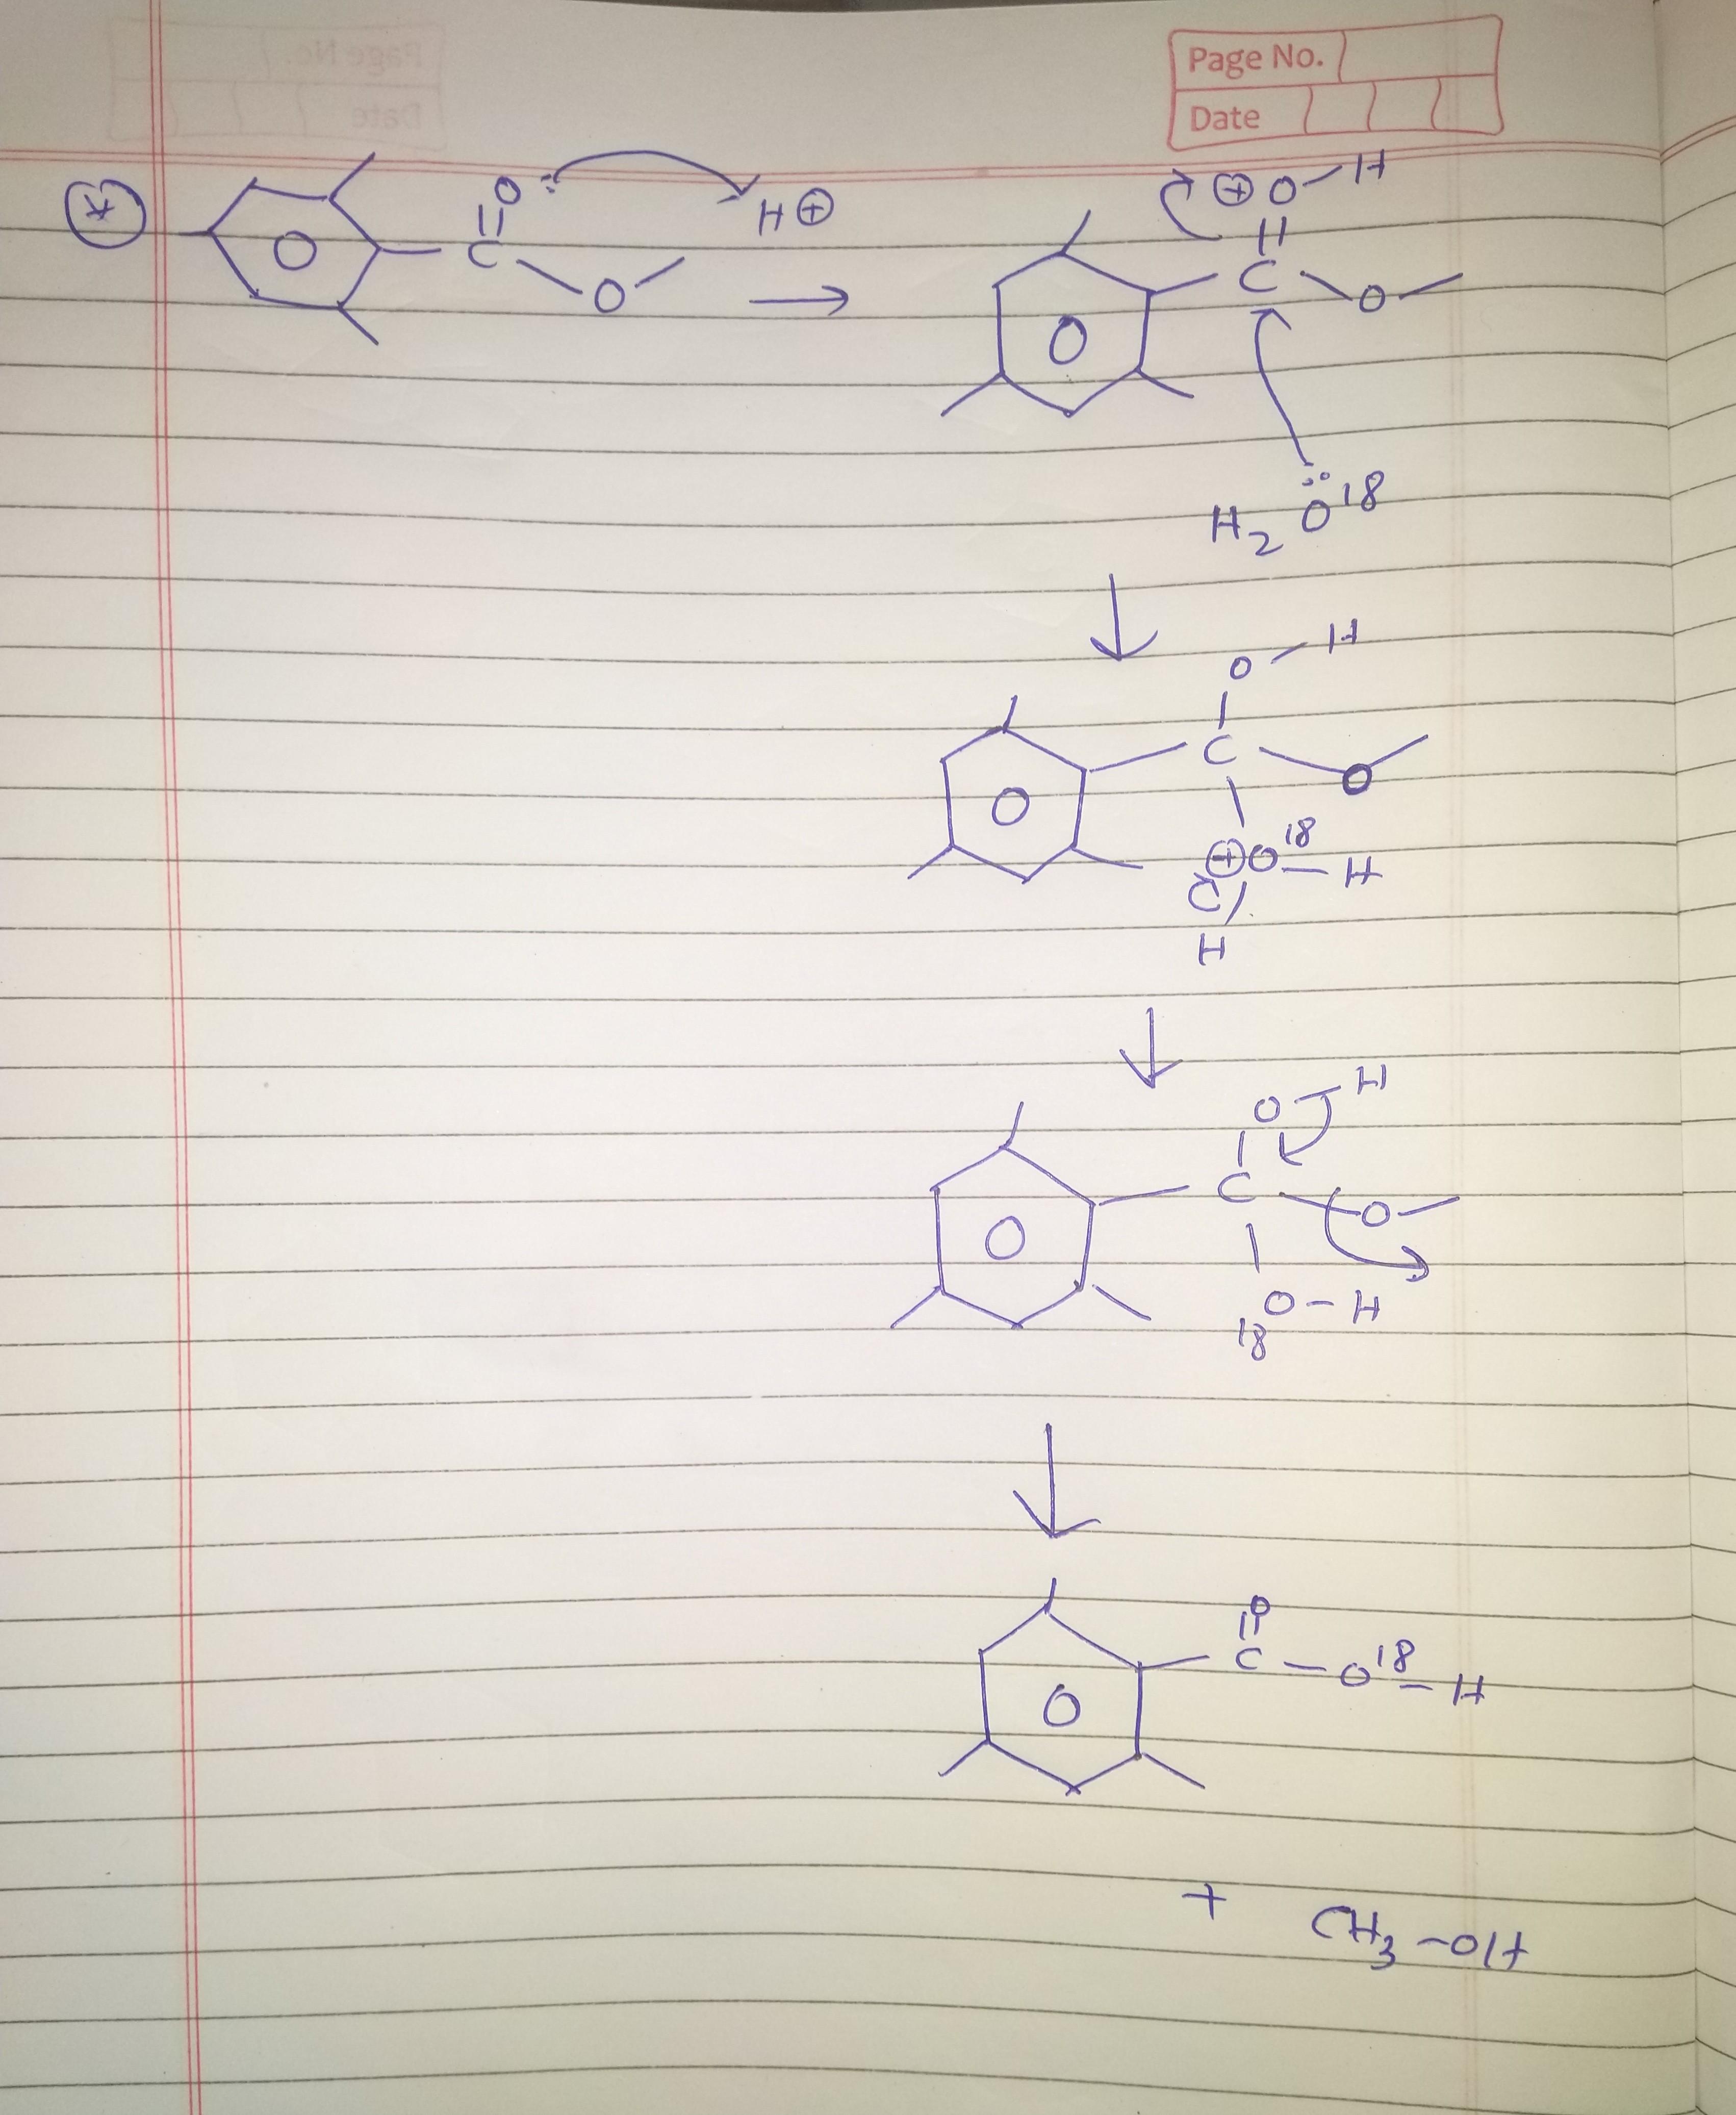 Page No.
Date
O : H ⊕
C
O
⊕ O-H
C
O
H₂ Ö 18
O - H
C
O
⊕ O 18 - H
H
O H
C
O
O - H
18
O
C - O 18 - H
+ CH₃ - OH